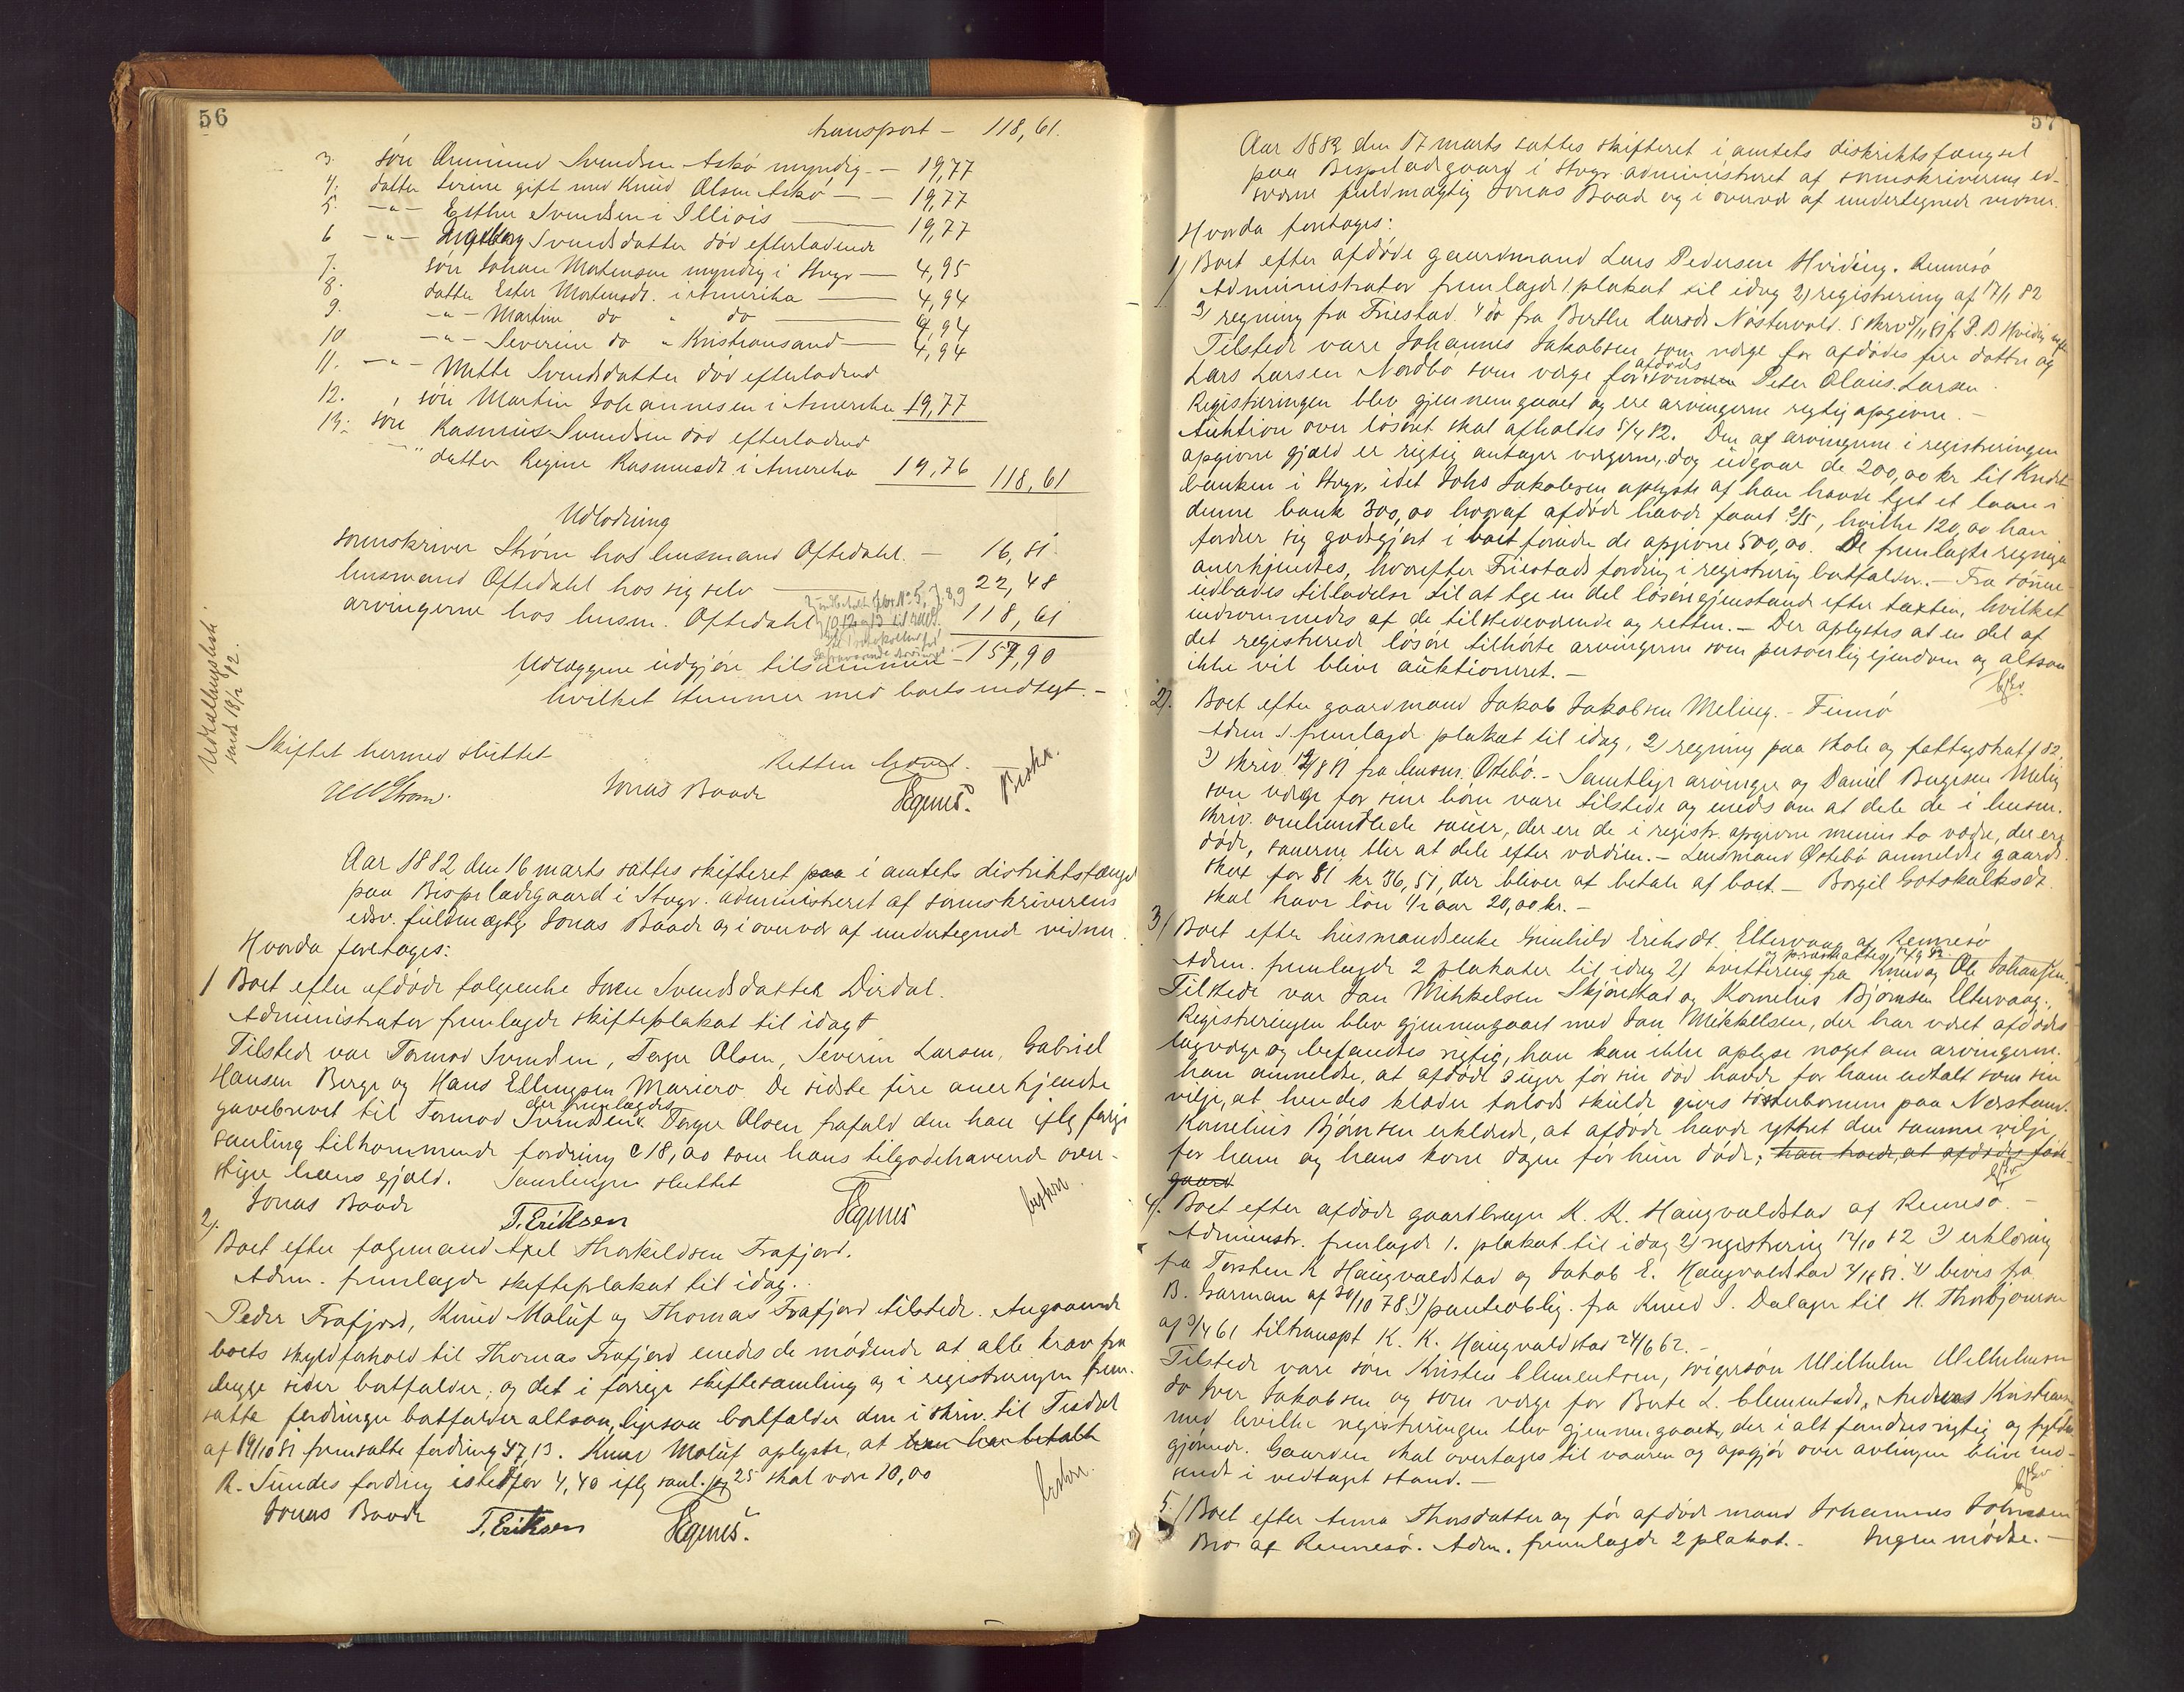 56
transport - 118,61.
3. søn Omund Svendsen Askø myndig - 19,77
4. datter Serine gift med Knud Olsen Askø - 19,77
5. -"- Esther Svendsen i Illiois 19,77
6 -"- Ingeborg Svendsdatter død efterladende
7. søn Johan Mortensen myndig i Stvgr 4,95
8. datter Ester Mortensdt. i Amerika 4,94
9. -"- Martine do " do 4,94
10 -"- Severine do " Kristiansand 4,94
11. -"- Mette Svendsdatter død efterladend
12. søn Martin Johannesen i Amerika 19,77
13. søn Rasmus Svendsen død efterladend
datter Regine Rasmusdt. i Amerika 19,76 118,61
Udlodning
sorenskriver Strøm hos lensmand Oftedahl. - 16,81
lensmand Oftedahl hos sig selv 22,48
arvingerne hos lensm. Oftedahl 118,61
Udlæggene udgjøre tilsammen - 157,90
hvilket stemmer med boets indtægt. -
Udbetalingsliste
sendt 18/12 82.
Skiftet hermed sluttet
Retten hævet.
Strøm. Jonas Baade Beskr.
Aar 1882 den 16 marts sattes skifteret paa i amtets distriktsfængsel
paa Bispeladegaard i Stvgr. administreret af sorenskriverens
edsv. fuldmægtig Jonas Baade og i overvær af undertegnede vidner.
Hvorda foretages:
1 Boet efter afdøde følgenke Svendsdatter Dirdal.
Administrator fremlagde skifteplakat til idag
Tilstede var Tormod Svendsen, Torger Olsen, Severin Larsen, Gabriel
Hansen Berge og Hans Ellingsen Mariero. De sidste fire anerkjendte
gavebrevet til Tormod Svendsen der fremlægdes. Torger Olsen frafald den han iflg forrige
samling tilkommende fordring c 18,00 som hans tilgodehavende over-
stiger hans gjæld. Samlingen sluttet
Jonas Baade T. Eriksen beskr.
2. Boet efter følgemand Axel Thorkildsen Frafjord.
Adm. fremlagde skifteplakat til idag.
Peder Frafjord, Knud Maluf og Thomas Frafjord tilstede. Angaaende
boets skyldforhold til Thomas Frafjord enedes de mødende at alle krav fra
begge sider bortfalder, og det i forrige skiftesamling og i registreringen frem-
satte fordringer bortfalder altsaa, ligesaa bortfalder den i skriv. til
af 19/10 81 fremsatte fordring 47,13. Knud Maluf oplyste, at han har betalt
R. Sundes fordring istedfor 4,40 iflg saml. pg 25 skal være 10,00
Jonas Baade T. Eriksen beskr.
57
Aar 1882 den 17 marts sattes skifteret i amtets distriktsfængsel
paa Bispeladegaard i Stvgr. administreret af sorenskriverens ed-
svorne fuldmægtig Jonas Baade og i overvær af undertegnede vidner.
Hvorda foretages:
1/ Boet efter afdøde gaardmand Lars Pedersen Hviding. Rennesø
Administrator fremlagde 1, plakat til idag 2) registrering af 17/1 82
3) regning fra Friestad. 4 do fra Berthe Larsdt Nøstervold. 5 skriv
Tilstede vare Johannes Jakobsen som værge for afdødes fire døttre og
Lars Larsen Nordbø som værge for afdødes sønnesøn Peter Olaus Larsen.
Registreringen blev gjennemgaaet og ere arvingerne rigtig opgivne. -
Auktion over løsøret skal afholdes 5/4 82. Den af arvingerne i registreringen
opgivne gjæld er rigtig antager værgerne, dog udgaar de 200,00 kr til Kredit
banken i Stvgr, idet Johs Jakobsen oplyste af han havde tget et laan i
denne bank 300,00 hvoraf afdøde havde faaet 2/5, hvilke 120,00 han
fordrer sig godtgjort i boet foruden de opgivne 500,00. De fremlagte regninger
anerkjendtes, hvorefter Friestads fordring i registrering bortfalder. - Fra sønne-
udbades tilladelse til at tge en del løsøregjenstande efter taxten, hvilket
indrømmedes af de tilstedeværende og retten. - Der oplystes at en del af
det registrerede løsøre tilhørte arvingerne som personlig ejendom og altsaa
ikke vil blive auktioneret. -
2). Boet efter gaardmand Jakob Jakobsen Meling. - Finnø
Adm. 1 fremlagde plakat til idag, 2) regning paa skole og fattigskat f 82.
3) skriv. fra lensm. Østebø. - Samtlige arvinger og Daniel Meling
som værge for sine børn vare tilstede og enedes om at dele de i lensm.
skriv. omhandlede sauer, der ere de i registr. opgivne minus to vædre, der ere
døde, sauerne blir at dele efter værdien. - Lensmand Østebø anmeldte gaards-
skat for 81 kr 36,51, der bliver at betale af boet - Borgil Gotskalksdt.
skal have løn 1/2 aar 20,00 kr. -
3/ Boet efter husmandsenke Gunhild Eriksdt. Eltervaag af Rennesø
Adm. fremlagde 2 plakater til idag 2) kvittering fra Knud og Ole Johansen.
Tilstede var Jan Mikkelsen Skjørestad og Kornelius Bjørnsen Eltervaag.
Registreringen blev gjennemgaaet med Jan Mikkelsen, der har været afdødes
lagværge og befandtes rigtig, han kan ikke oplyse noget om arvingerne.
han anmeldte, at afdøde 3 uger før sin død havde for ham udtalt som sin
vilje, at hendes klæder tilods skulde gives søsterbørnene paa Nærstrand.
Kornelius Bjørnsen erklærede, at afdøde havde yttret den samme vilje
for ham og hans kone dagen før hun døde; han troede, at afdødes føde-
gaard
4. Boet efter afdøde gaardbruger K. K. Haugvaldstad af Rennesø. -
Adminstr. fremlagde 1. plakat til idag 2) registrering 12/10 82 3) erklæring
fra Torsten K Haugvaldstad og Jakob E. Haugvaldstad 4) bevis fra
B. Garman af 30/10 78 5) panteoblig. fra Knud I. Dalager til H. Thorbjørnsen
af 3/4 61 tiltranspt K. K. Haugvaldstad 24/6 62. -
Tilstede vare søn Kristen Clementsen, svigersøn Wilhelm Wilhelmsen
do Iver Jakobsen og som værge for Berte L. Clementsdt. Andreas Kristiansen
med hvilke registreringen blev gjennemgaaet, der i alt fandtes rigtig og fyldest-
gjørende. Gaarden skal overtages til vaaren og opgjør over avlingen blive ind-
sendt i vedtaget stand. -
5./ Boet efter Anna Thorsdatter og før afdøde mand Johannes Johnsen
Bro af Rennesø. Adm. fremlagde 2 plakat. - Ingen mødte. -